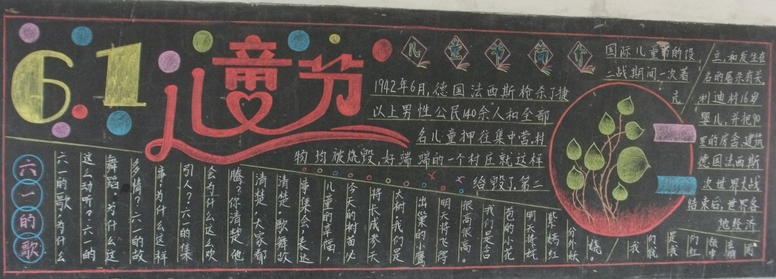 6.1
儿童节
儿童节简介
国际儿童节的设
立,和发生在
二战期间一次著
名的屠杀有关
1942年6月,德国法西斯枪杀了捷
克
利迪村16岁
以上男性公民140余人和全部
婴儿,并把90
名儿童押往集中营,村
里的房舍、建筑
物均被烧毁,好端端的一个村庄就这样
德国法西斯
给毁了第二
次世界大战
结束后,世界各
地经济
六一的歌
六一的歌,为什么
这么动听?六一的
舞蹈,为什么这
么多情?六一的故
事?为什么这样
引人?六一的集
会为什么这么欢
腾?你清楚他
清楚,大家都
清楚,歌舞欢
集会,表达
儿童的幸福,
今天的树苗,
将长成参天
大树,我们是
出巢的小鹰
明天将飞得
很高很高。
我们是含
苞的小花
明天将
姹紫嫣红